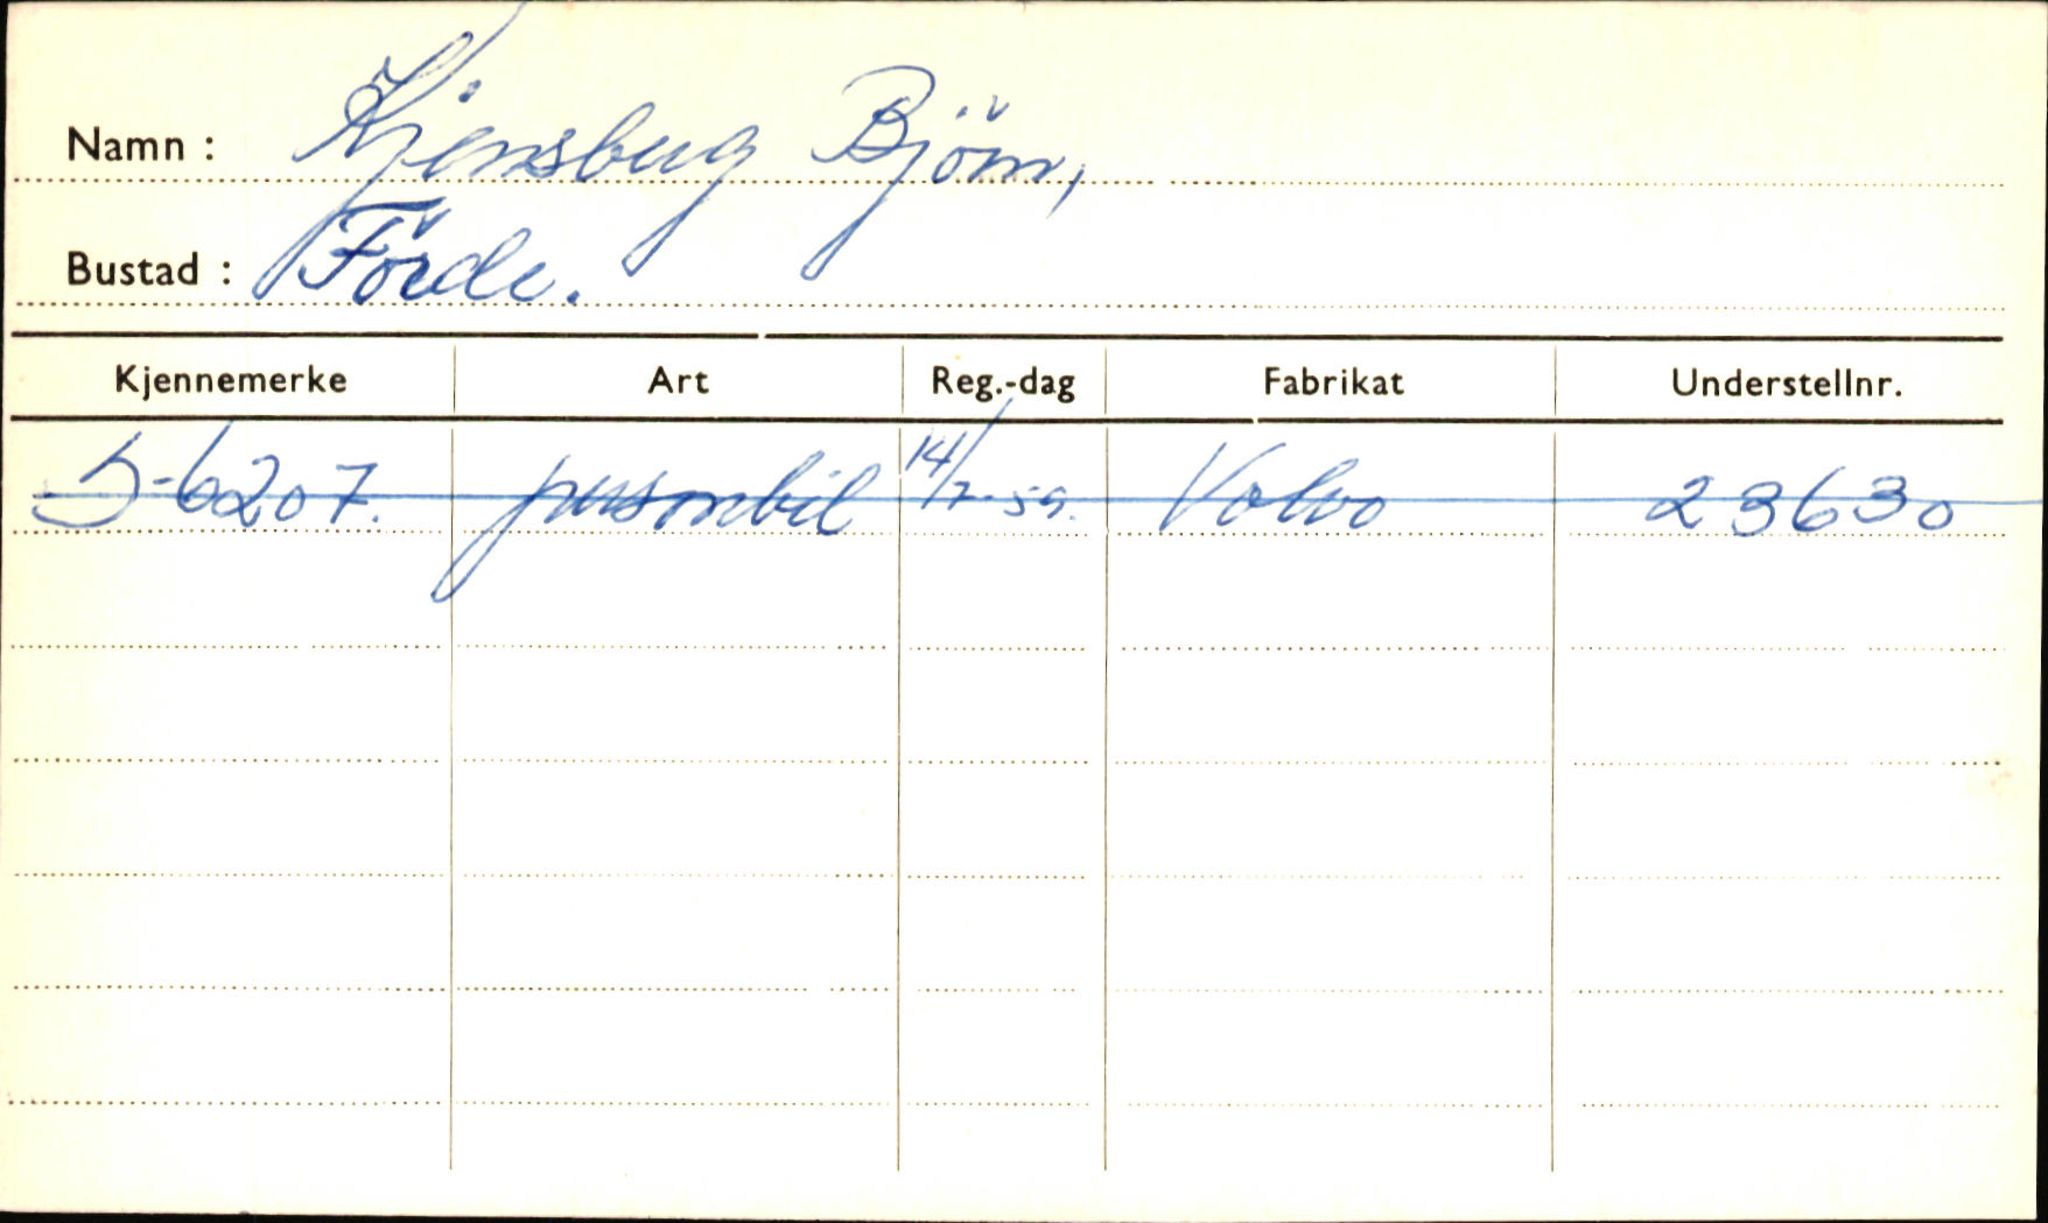 Namn : Kjensberg Björn,
Bustad : Förde.
Kjennemerke Art Reg.-dag Fabrikat Understellnr.
S-6207. personbil 14/7-59. Volvo 23630